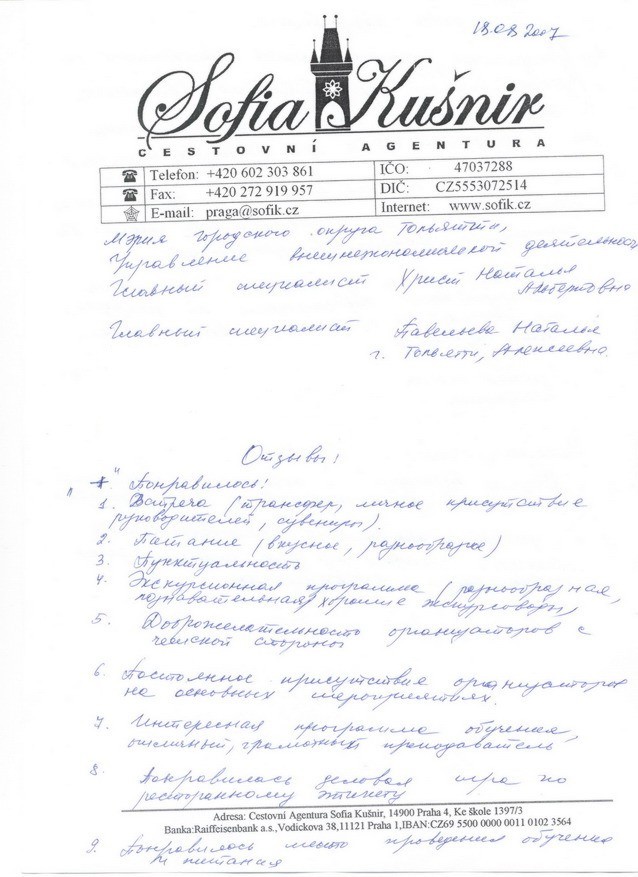 18.08.2007
Sofia Kušnir
CESTOVNÍ AGENTURA
Telefon: +420 602 303 861 IČO: 47037288
Fax: +420 272 919 957 DIČ: CZ5553072514
E-mail: praga@sofik.cz Internet: www.sofik.cz
Мэрия городского округа Тольятти,
Управление внешнеэкономической деятельности
Главный специалист Христ Наталья
Альбертовна
Главный специалист Павельева Наталья
г. Тольятти, Алексеевна.
Отзывы!
"+" Понравилось!
1. Встреча (трансфер, личное присутствие
руководителей, сувениры).
2. Питание (вкусное, разнообразное)
3. Пунктуальность
4. Экскурсионная программа (разнообразная,
познавательная, хорошие экскурсоводы)
5. Доброжелательность организаторов с
чешской стороны
6. Постоянное присутствие организаторов
на основных мероприятиях.
7. Интересная программа обучения,
отличный, грамотный преподаватель
8. Понравилась деловая игра по
ресторанному этикету
Adresa: Cestovní Agentura Sofia Kušnir, 14900 Praha 4, Ke škole 1397/3
Banka:Raiffeisenbank a.s.,Vodickova 38,11121 Praha 1,IBAN:CZ69 5500 0000 0011 0102 3564
9. Понравилось место проведения обучения
и питания